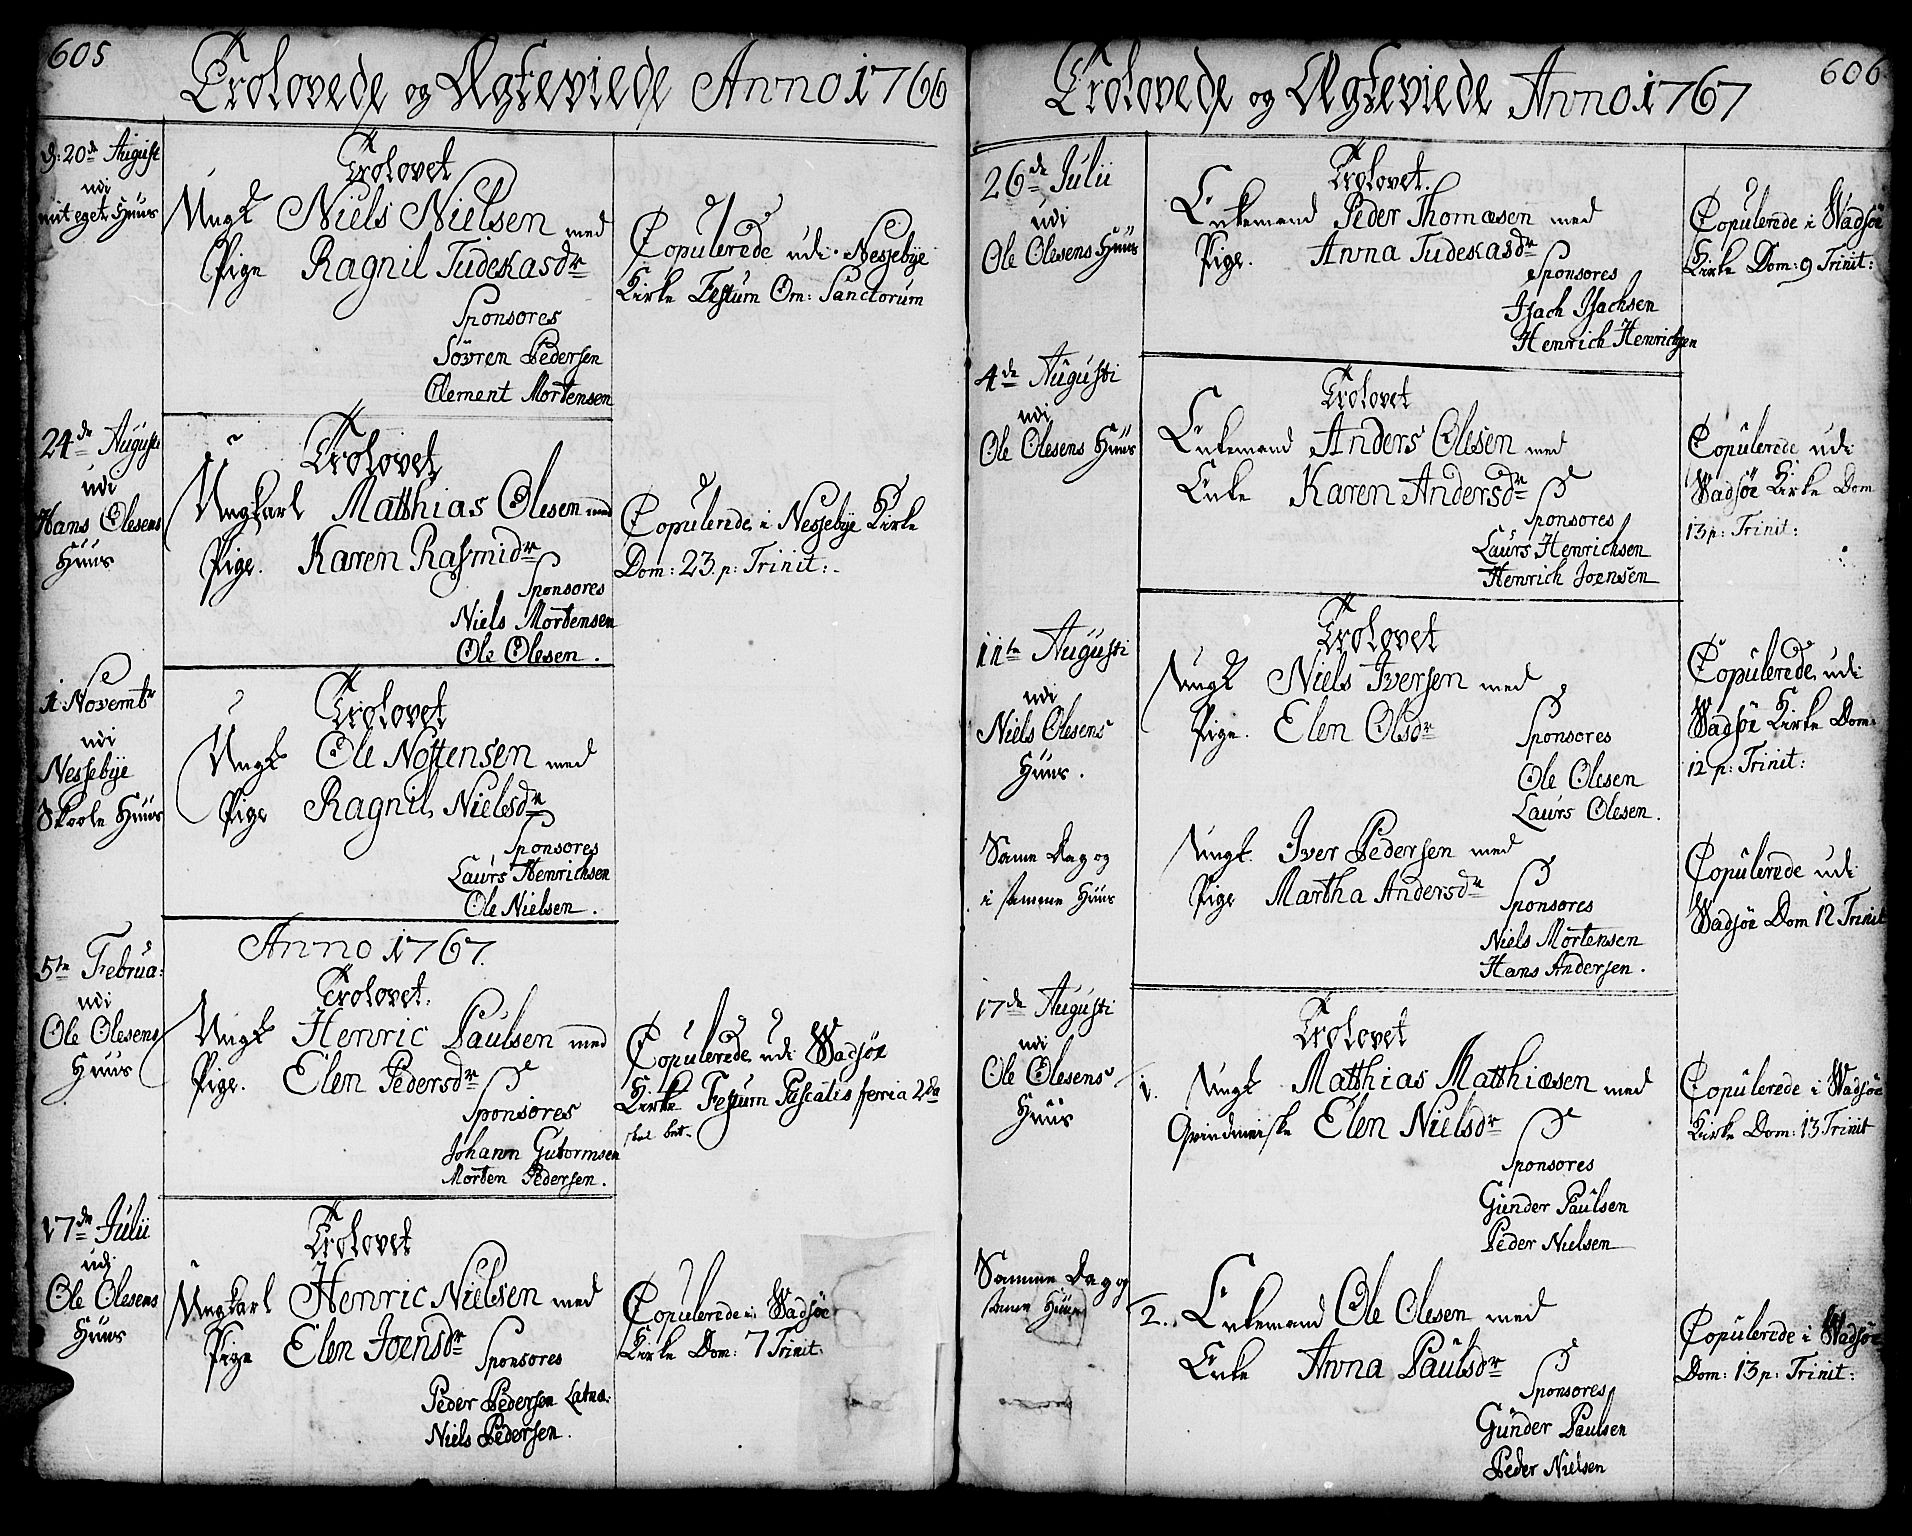 605
Trolovede og Ægteviede Anno 1766
d: 20de August
udi
mit eget Huus
Trolovet
Ungk Niels Nielsen med
Pige Ragnil Tudekasdr
Sponsores
Sövren Pedersen
Clement Mortensen
Copulerede udi Nessebye
Kirke Festum Om: Sanctorum
24de Augusti
udi
Hans Olesens
Huus
Trolovet
Ungkarl Matthias Olesen med
Pige. Karen Rasmidr
Sponsores
Niels Mortensen
Ole Olesen.
Copulerede i Nessebye Kirke
Dom: 23. p: Trinit:
1 Novembr
udi
Nessebye
Skoole Huus
Trolovet
Ungk Ole Nostensen med
Pige Ragnil Nielsdr
Sponsores
Laurs Henrichsen
Ole Nielsen.
Anno 1767.
5te Februa:
udi
Ole Olesens
Huus
Trolovet.
Ungk Henric Paulsen med
Pige. Elen Pedersdr
Sponsores
Johann Gutormsen
Morten Pedersen.
Copulerede udi Wadsöe
Kirke Festum Pascalis ferria 2da
17de Julii
udi
Ole Olesens
Huus
Trolovet
Ungkarl Henric Nielsen med
Pige Elen Joensdr
Sponsores
Peder Pedersen
Niels Pedersen.
Copulerede i Wadsöe
Kirke Dom: 7 Trinit:
606
Trolovede og Ægteviede Anno 1767
26de Julii
udi
Ole Olesens Huus
Trolovet.
Enkemand Peder Thomæsen med
Pige. Anna Tudekasdr
Sponsores
Isach Isachsen
Henrich Henrichsen
Copulerede i Wadsöe
Kirke Dom: 9 Trinit:
4de Augusti
udi
Ole Olesens Huus
Trolovet
Enkemand Anders Olesen med
Enke Karen Andersdr
Sponsores
Laurs Henrichsen
Henrich Joensen
Copulerede udi
Wadsöe Kirke Dom
13 p: Trinit:
11te Augusti
udi
Niels Olesens
Huus.
Trolovet
Ungk Niels Iversen med
Pige. Elen Olsdr
Sponsores
Ole Olesen
Laurs Olesen.
Copulerede udi
Wadsöe Kirke Dom:
12 p: Trinit:
Same Dag og
i samme Huus
Ungk. Iver Pedersen med
Pige Martha Andersdr
Sponsores
Niels Mortensen
Hans Andersen.
Copulerede udi
Wadsöe Dom 12 Trinit
17de Augusti
udi
Ole Olesens
Huus
Trolovet
1. Ungk Matthias Matthiæsen med
Qvindmeiske Elen Nielsdr
Sponsores
Günder Paulsen
Peder Nielsen
Copulerede i Wadsöe
Kirke Dom: 13 Trinit
Samme Dag og
same Huus
2. Enkemand Ole Olesen med
Enke Anna Paulsdr
Sponsores
Günder Paulsen
Peder Nielsen
Copulerede i Wadsöe
Dom: 13 p: Trinit: